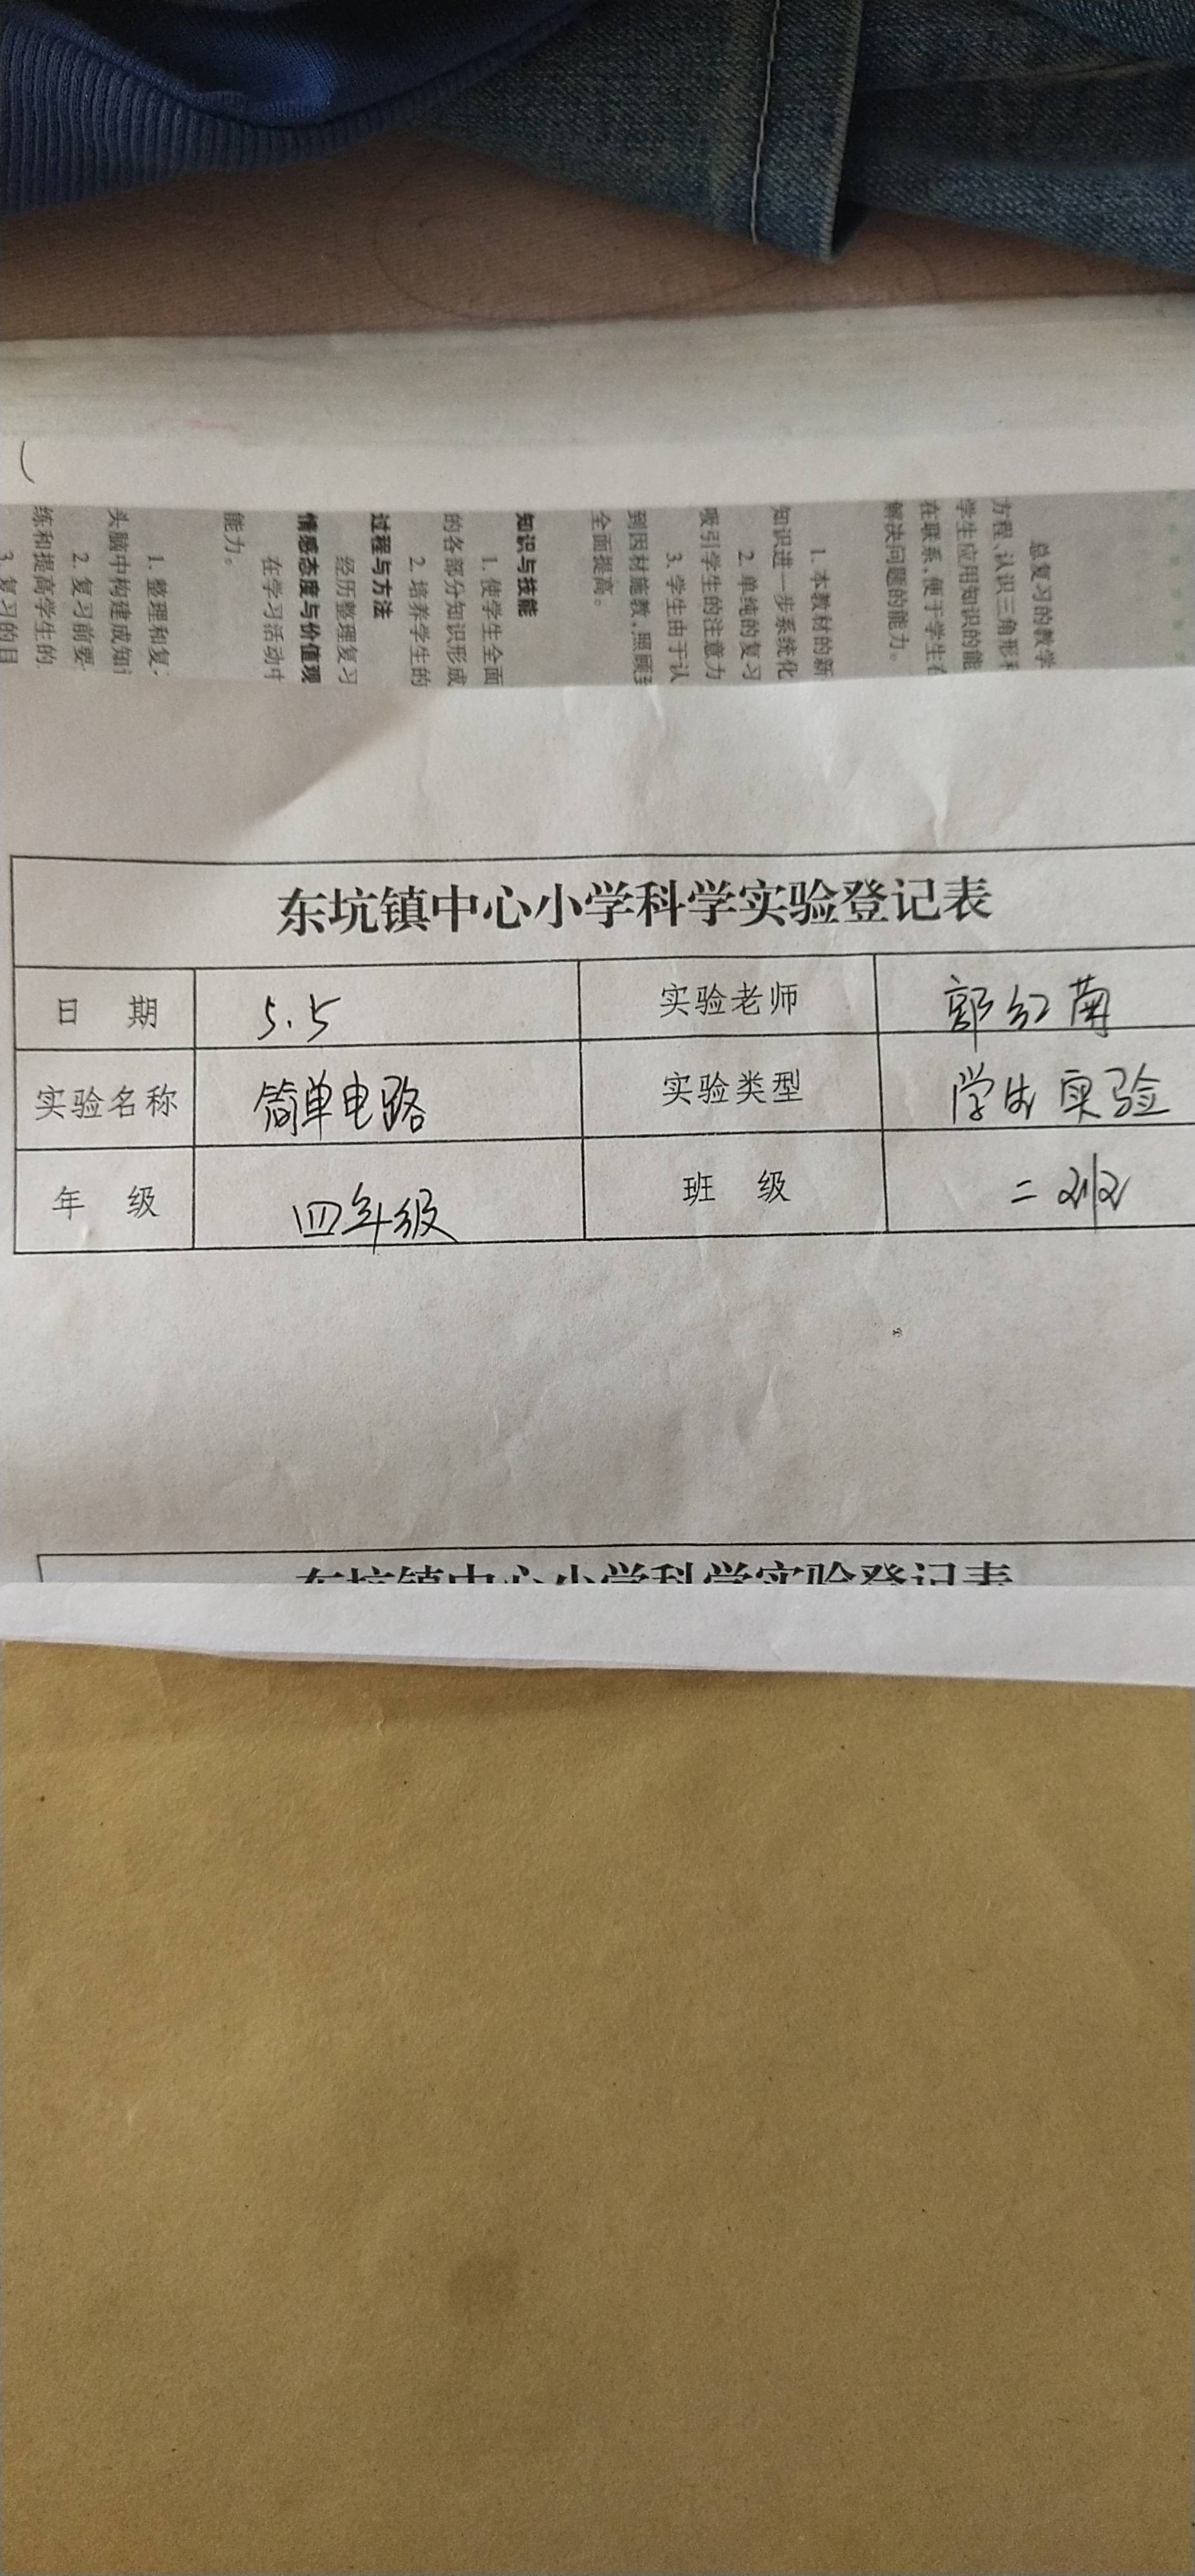 总复习的教学
方程、认识三角形和
学生应用知识的能
在联系,便于学生在
解决问题的能力。
1. 本教材的新
知识进一步系统化
2. 单纯的复习
吸引学生的注意力
3. 学生由于认
到因材施教,照顾到
全面提高。
知识与技能
1. 使学生全面
的各部分知识形成
2. 培养学生的
过程与方法
经历整理复习
情感态度与价值观
在学习活动中
能力。
1. 整理和复
头脑中构建成知
2. 复习前要
练和提高学生的
3. 复习的目
东坑镇中心小学科学实验登记表
日 期 5.5 实验老师 郭红菊
实验名称 简单电路 实验类型 学生实验
年 级 四年级 班 级 二班
东坑镇中心小学科学实验登记表